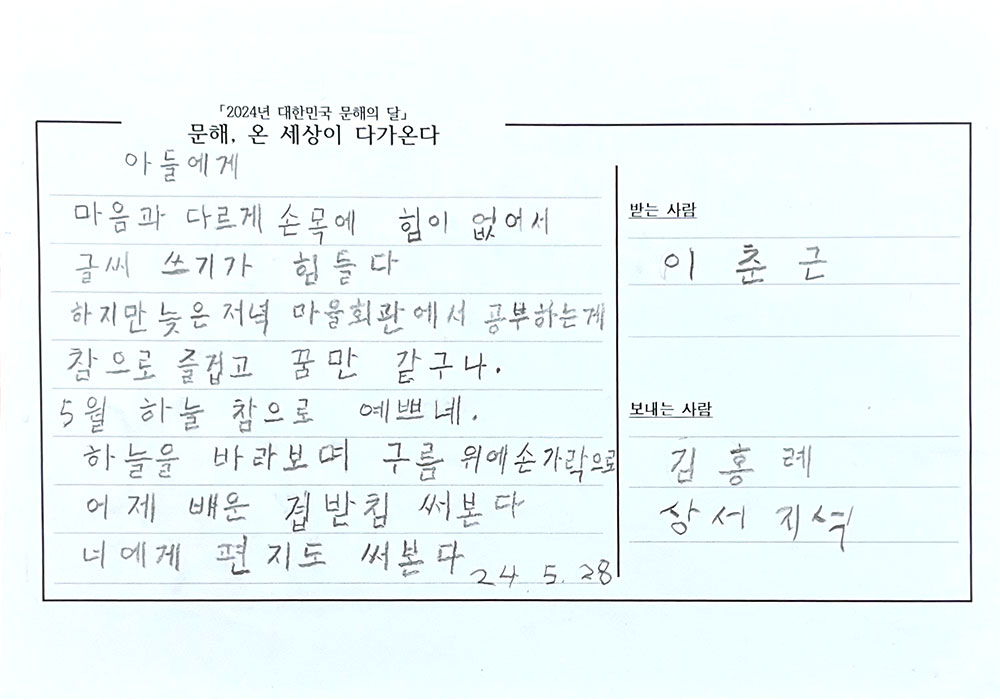 「2024년 대한민국 문해의 달」
문해, 온 세상이 다가온다
아들에게
마음과 다르게 손목에 힘이 없어서
글씨 쓰기가 힘들다
하지만 늦은 저녁 마을회관에서 공부하는게
참으로 즐겁고 꿈만 같구나.
5월 하늘 참으로 예쁘네.
하늘을 바라보며 구름 위에 손가락으로
어제 배운 겹받침 써본다
너에게 편지도 써본다
24. 5. 28
받는 사람
이 춘 근
보내는 사람
김 홍 례
상서 지석